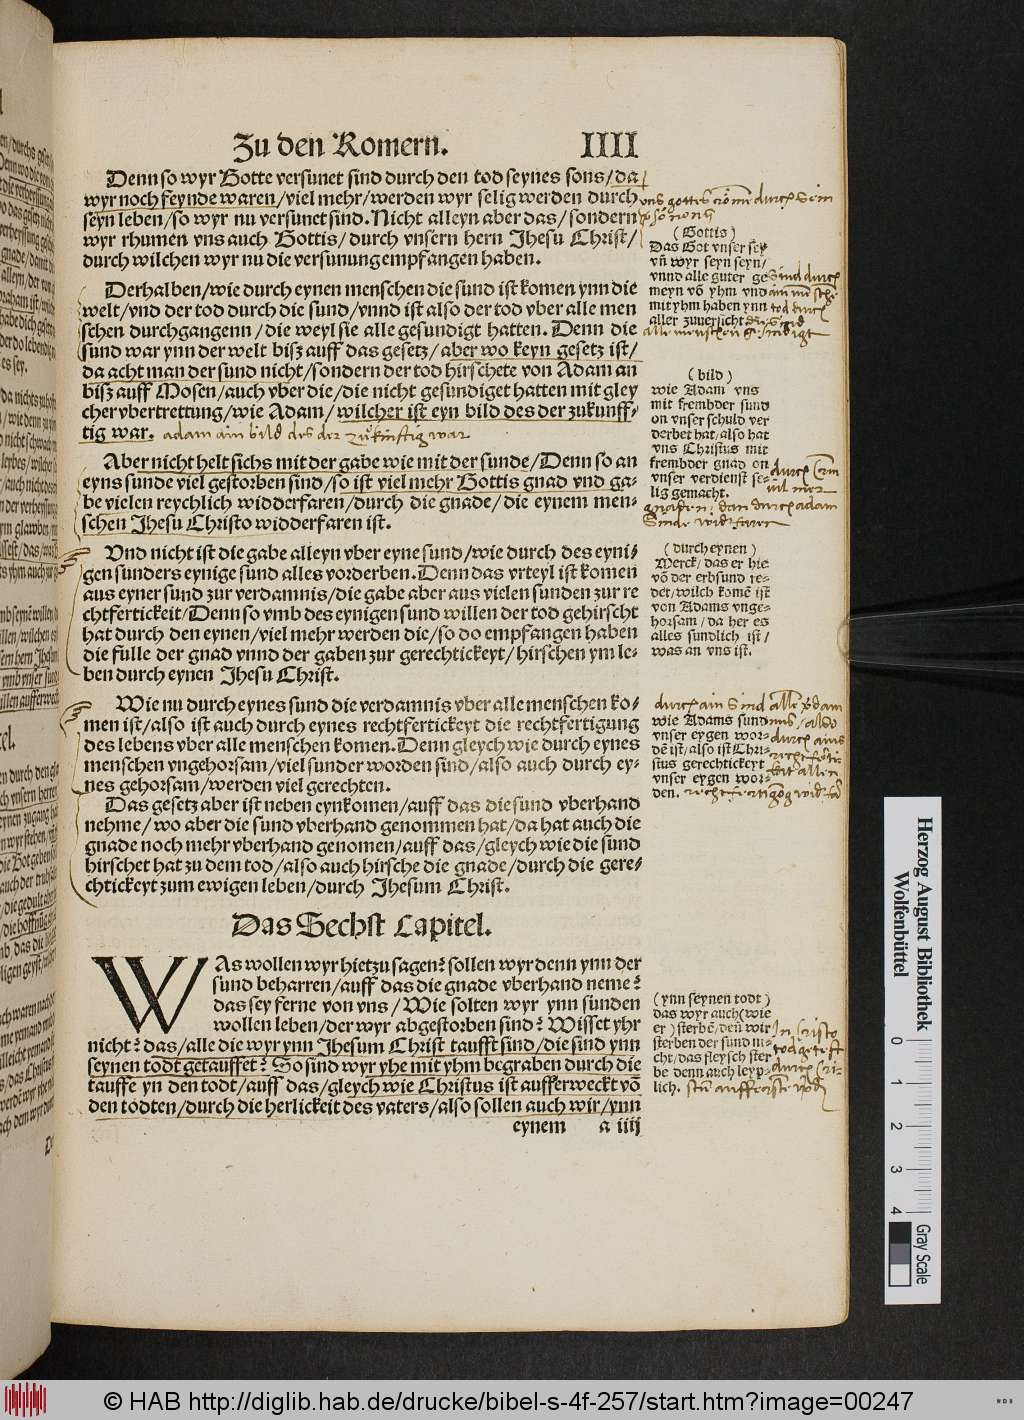 Zu den Romern. IIII
Denn so wyr Gotte versunet sind durch den tod seynes sons/da
wyr noch feynde waren/viel mehr/werden wyr selig werden durch
seyn leben/so wyr nu versunet sind. Nicht alleyn aber das/sondern
wyr rhumen vns auch Gottis/durch vnsern hern Jhesu Christ/
durch wilchen wyr nu die versunung empfangen haben.
Derhalben/wie durch eynen menschen die sund ist komen ynn die
welt/vnd der tod durch die sund/vnnd ist also der tod vber alle men
schen durchgangenn/die weyl sie alle gesundigt hatten. Denn die
sund war ynn der welt bisz auff das gesetz/aber wo keyn gesetz ist/
da acht man der sund nicht/sondern der tod hirschete von Adam an
bisz auff Mosen/auch vber die/die nicht gesundiget hatten mit gley
cher vbertrettung/wie Adam/wilcher ist eyn bild des der zukunff-
tig war. adam ain bild des der zukinftig war
Aber nicht helt sichs mit der gabe wie mit der sunde/Denn so an
eyns sunde viel gestorben sind/so ist viel mehr Gottis gnad vnd ga-
be vielen reychlich widderfaren/durch die gnade/die eynem men-
schen Jhesu Christo widderfaren ist.
Vnd nicht ist die gabe alleyn vber eyne sund/wie durch des eyni-
gen sunders eynige sund alles vorderben. Denn das vrteyl ist komen
aus eyner sund zur verdamnis/die gabe aber aus vielen sunden zur re
chtfertickeit/Denn so vmb des eynigen sund willen der tod gehirscht
hat durch den eynen/viel mehr werden die/so do empfangen haben
die fulle der gnad vnnd der gaben zur gerechtickeyt/hirschen ym le-
ben durch eynen Jhesu Christ.
Wie nu durch eynes sund die verdamnis vber alle menschen ko-
men ist/also ist auch durch eynes rechtfertickeyt die rechtfertigung
des lebens vber alle menschen komen. Denn gleych wie durch eynes
menschen vngehorsam/viel sunder worden sind/also auch durch ey-
nes gehorsam/werden viel gerechten.
Das gesetz aber ist neben eynkomen/auff das die sund vberhand
nehme/wo aber die sund vberhand genommen hat/da hat auch die
gnade noch mehr vberhand genomen/auff das/gleych wie die sund
hirschet hat zu dem tod/also auch hirsche die gnade/durch die gere-
chtickeyt zum ewigen leben/durch Jhesum Christ.
Das Sechst Capitel.
WAs wollen wyr hietzu sagen? sollen wyr denn ynn der
sund beharren/auff das die gnade vberhand neme?
das sey ferne von vns/Wie solten wyr ynn sunden
wollen leben/der wyr abgestorben sind? Wisset yhr
nicht? das/alle die wyr ynn Jhesum Christ taufft sind/die sind ynn
seynen todt getauffet? So sind wyr yhe mit yhm begraben durch die
tauffe yn den todt/auff das/gleych wie Christus ist aufferweckt võ
den todten/durch die herlickeit des vaters/also sollen auch wir/ynn
eynem a iiij
(Gottis)
Das Got vnser sey
vñ wyr seyn seyn/
vnnd alle guter ge
meyn võ yhm vnd
mit yhm haben ynn
aller zuuersicht
(bild)
wie Adam vns
mit frembder sund
on vnser schuld ver
derbet hat/also hat
vns Christus mit
frembder gnad on
vnser verdienst se-
lig gemacht.
(durch eynen)
Merck/das er hie
võ der erbsund re-
det/wilch komē ist
von Adams vnge-
horsam/da her es
alles sundlich ist/
was an vns ist.
wie Adams sund
vnser eygen wor-
dē ist/also ist Chri-
stus gerechtickeyt
vnser eygen wor-
den.
(ynn seynen todt)
das wyr auch (wie
er) sterbē/deñ wir
sterben der sund ni-
cht/das fleysch ster
be denn auch leyp-
lich.
Herzog August Bibliothek
Wolfenbüttel
0 1 2 3 4
Gray Scale
© HAB http://diglib.hab.de/drucke/bibel-s-4f-257/start.htm?image=00247